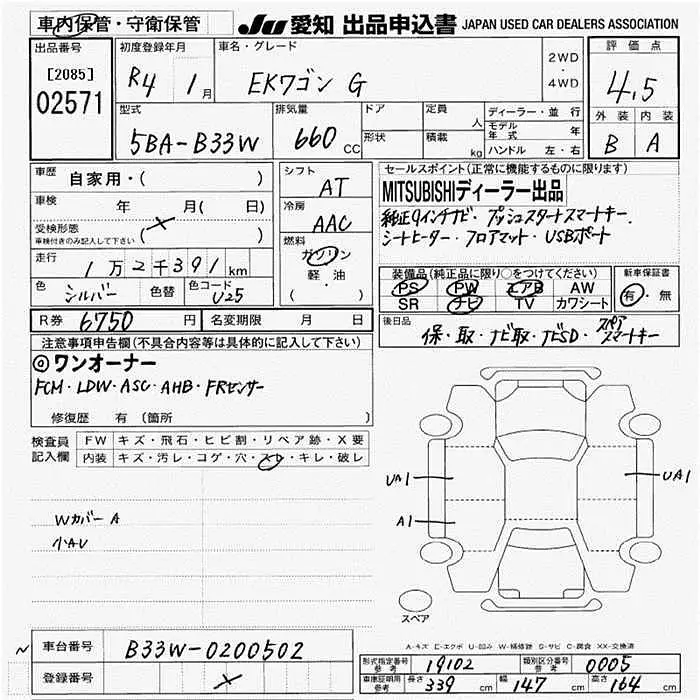 車内保管・守衛保管
JU 愛知 出品申込書 JAPAN USED CAR DEALERS ASSOCIATION
出品番号
[2085]
02571
初度登録年月
R4 1月
車名・グレード
EKワゴン G
2WD・4WD
評価点
4.5
外装 内装
B A
型式
5BA-B33W
排気量
660 CC
ドア
形状
定員 人
積載 kg
ディーラー・並行
モデル年式 年
ハンドル 左・右
車歴 自家用・( )
車検 年 月( 日)
受検形態 ( × )
車検付きのみ記入して下さい
走行 1万2千391km
色 シルバー 色替 色コード U25
シフト AT
冷房 AAC
燃料
ガソリン
軽油
( ・ )
セールスポイント(正常に機能するものに限ります)
MITSUBISHIディーラー出品
純正9インチナビ・プッシュスタートスマートキー・
シートヒーター・フロアマット・USBポート
装備品(純正品に限り○をつけてください)
PS PW エアB AW
SR ナビ TV カワシート
新車保証書
有・無
R券 6750円 名変期限 月 日
後日品
保・取・ナビ取・ナビSD・スペアスマートキー
注意事項申告欄(不具合内容等は具体的に記入して下さい)
◎ワンオーナー
FCM・LDW・ASC・AHB・FRセンサー
修復歴 有 〔箇所 〕
検査員記入欄
FW キズ・飛石・ヒビ割・リペア跡・X要
内装 キズ・汚レ・コゲ・穴・スレ・キレ・破レ
Wカバー A
小AU
UA1
A1
UA1
スペア
A-キズ E-エクボ U-凹み W-補修跡 S-サビ C-腐食 XX-交換済
車台番号 B33W-0200502
登録番号 ×
形式指定番号 参考 19102 類別区分番号 参考 0005
車庫証明用 参考 長さ 339 cm 幅 147 cm 高さ 164 cm